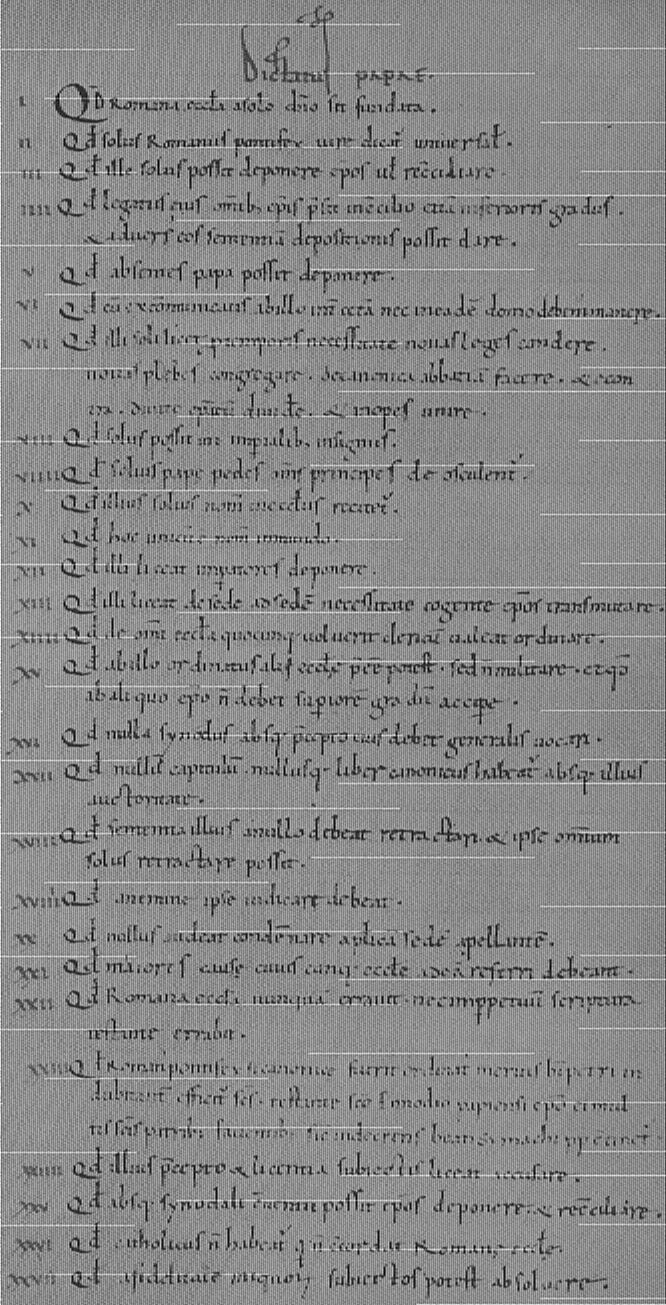 Dictatus papae.
I Qđ Romana eccl̄a a solo dn̄o sit fundata.
II Qđ solus Romanus pontifex iure dicat̄ universal̄.
III Qđ ille solus possit deponere ep̄os ul̄ recc̄iliare.
IIII Qđ legatus eius om̄ib; ep̄is p̄sit in c̄cilio etiā inferioris gradus.
& advers̄ eos sententiā depositionis possit dare.
V Qđ absentes papa possit deponere.
VI Qđ cū excōmunicatis ab illo int̄ cetā nec in eadē domo debem̄ manere.
VII Qđ illi soli licet p̄ temporis necessitate novas leges condere.
novas plebes congregare. de canonica abbatiā facere. & econ
tra. divite ep̄atū dividē. & inopes unire.
VIII Qđ solus possit uti imp̄ialib; insigniis.
VIIII Qđ solius pape pedes om̄s principes deosculent̄.
X Qđ illius solius nom̄ in eccl̄iis recitet̄.
XI Qđ hoc unicū ē nom̄ in mundo.
XII Qđ illi liceat imp̄atores deponere.
XIII Qđ illi liceat de sede ad sedē necessitate cogente ep̄os transmutare.
XIIII Qđ de om̄i eccl̄a quocunq; voluerit clericū valeat ordinare.
XV Qđ ab illo ordinatus alii eccl̄e p̄eē potest. sed n̄ militare. et qđ
ab aliquo ep̄o n̄ debet sup̄iorē gradū accip̄e.
XVI Qđ nulla synodus absq; p̄cepto eius debet generalis vocari.
XVII Qđ nullū capitulū. nullusq; liber canonicus habeat̄ absq; illius
auctoritate.
XVIII Qđ sententia illius a nullo debeat retractari. & ipse omnium
solus retractare possit.
XVIIII Qđ a nemine ipse iudicari debeat.
XX Qđ nullus audeat condēnare ap̄licā sedē apellantē.
XXI Qđ maiores cause cuiuscunq; eccl̄e ad eā referri debeant.
XXII Qđ Romana eccl̄a nunquā erravit. nec inp̄petuū scriptura
testante errabit.
XXIII Qđ Roman̄ pontifex si canonice fuerit ordinat̄ meritis b̄ petri in
dubitant̄ effic̄it̄ sc̄s. testante sc̄o Ennodio papiensi ep̄o ei mul
tis sc̄is patrib; faventib; sic in decretis beati symachi pp̄ c̄tinet̄.
XXIIII Qđ illius p̄cepto & licentia subiectis liceat accusare.
XXV Qđ absq; synodali c̄ventu possit ep̄os deponere. & recc̄iliare.
XXVI Qđ catholicus n̄ habeat̄ q̄ n̄ c̄cordat Romane eccl̄e.
XXVII Qđ a fidelitate iniquoꝝ subiectos potest absolvere.